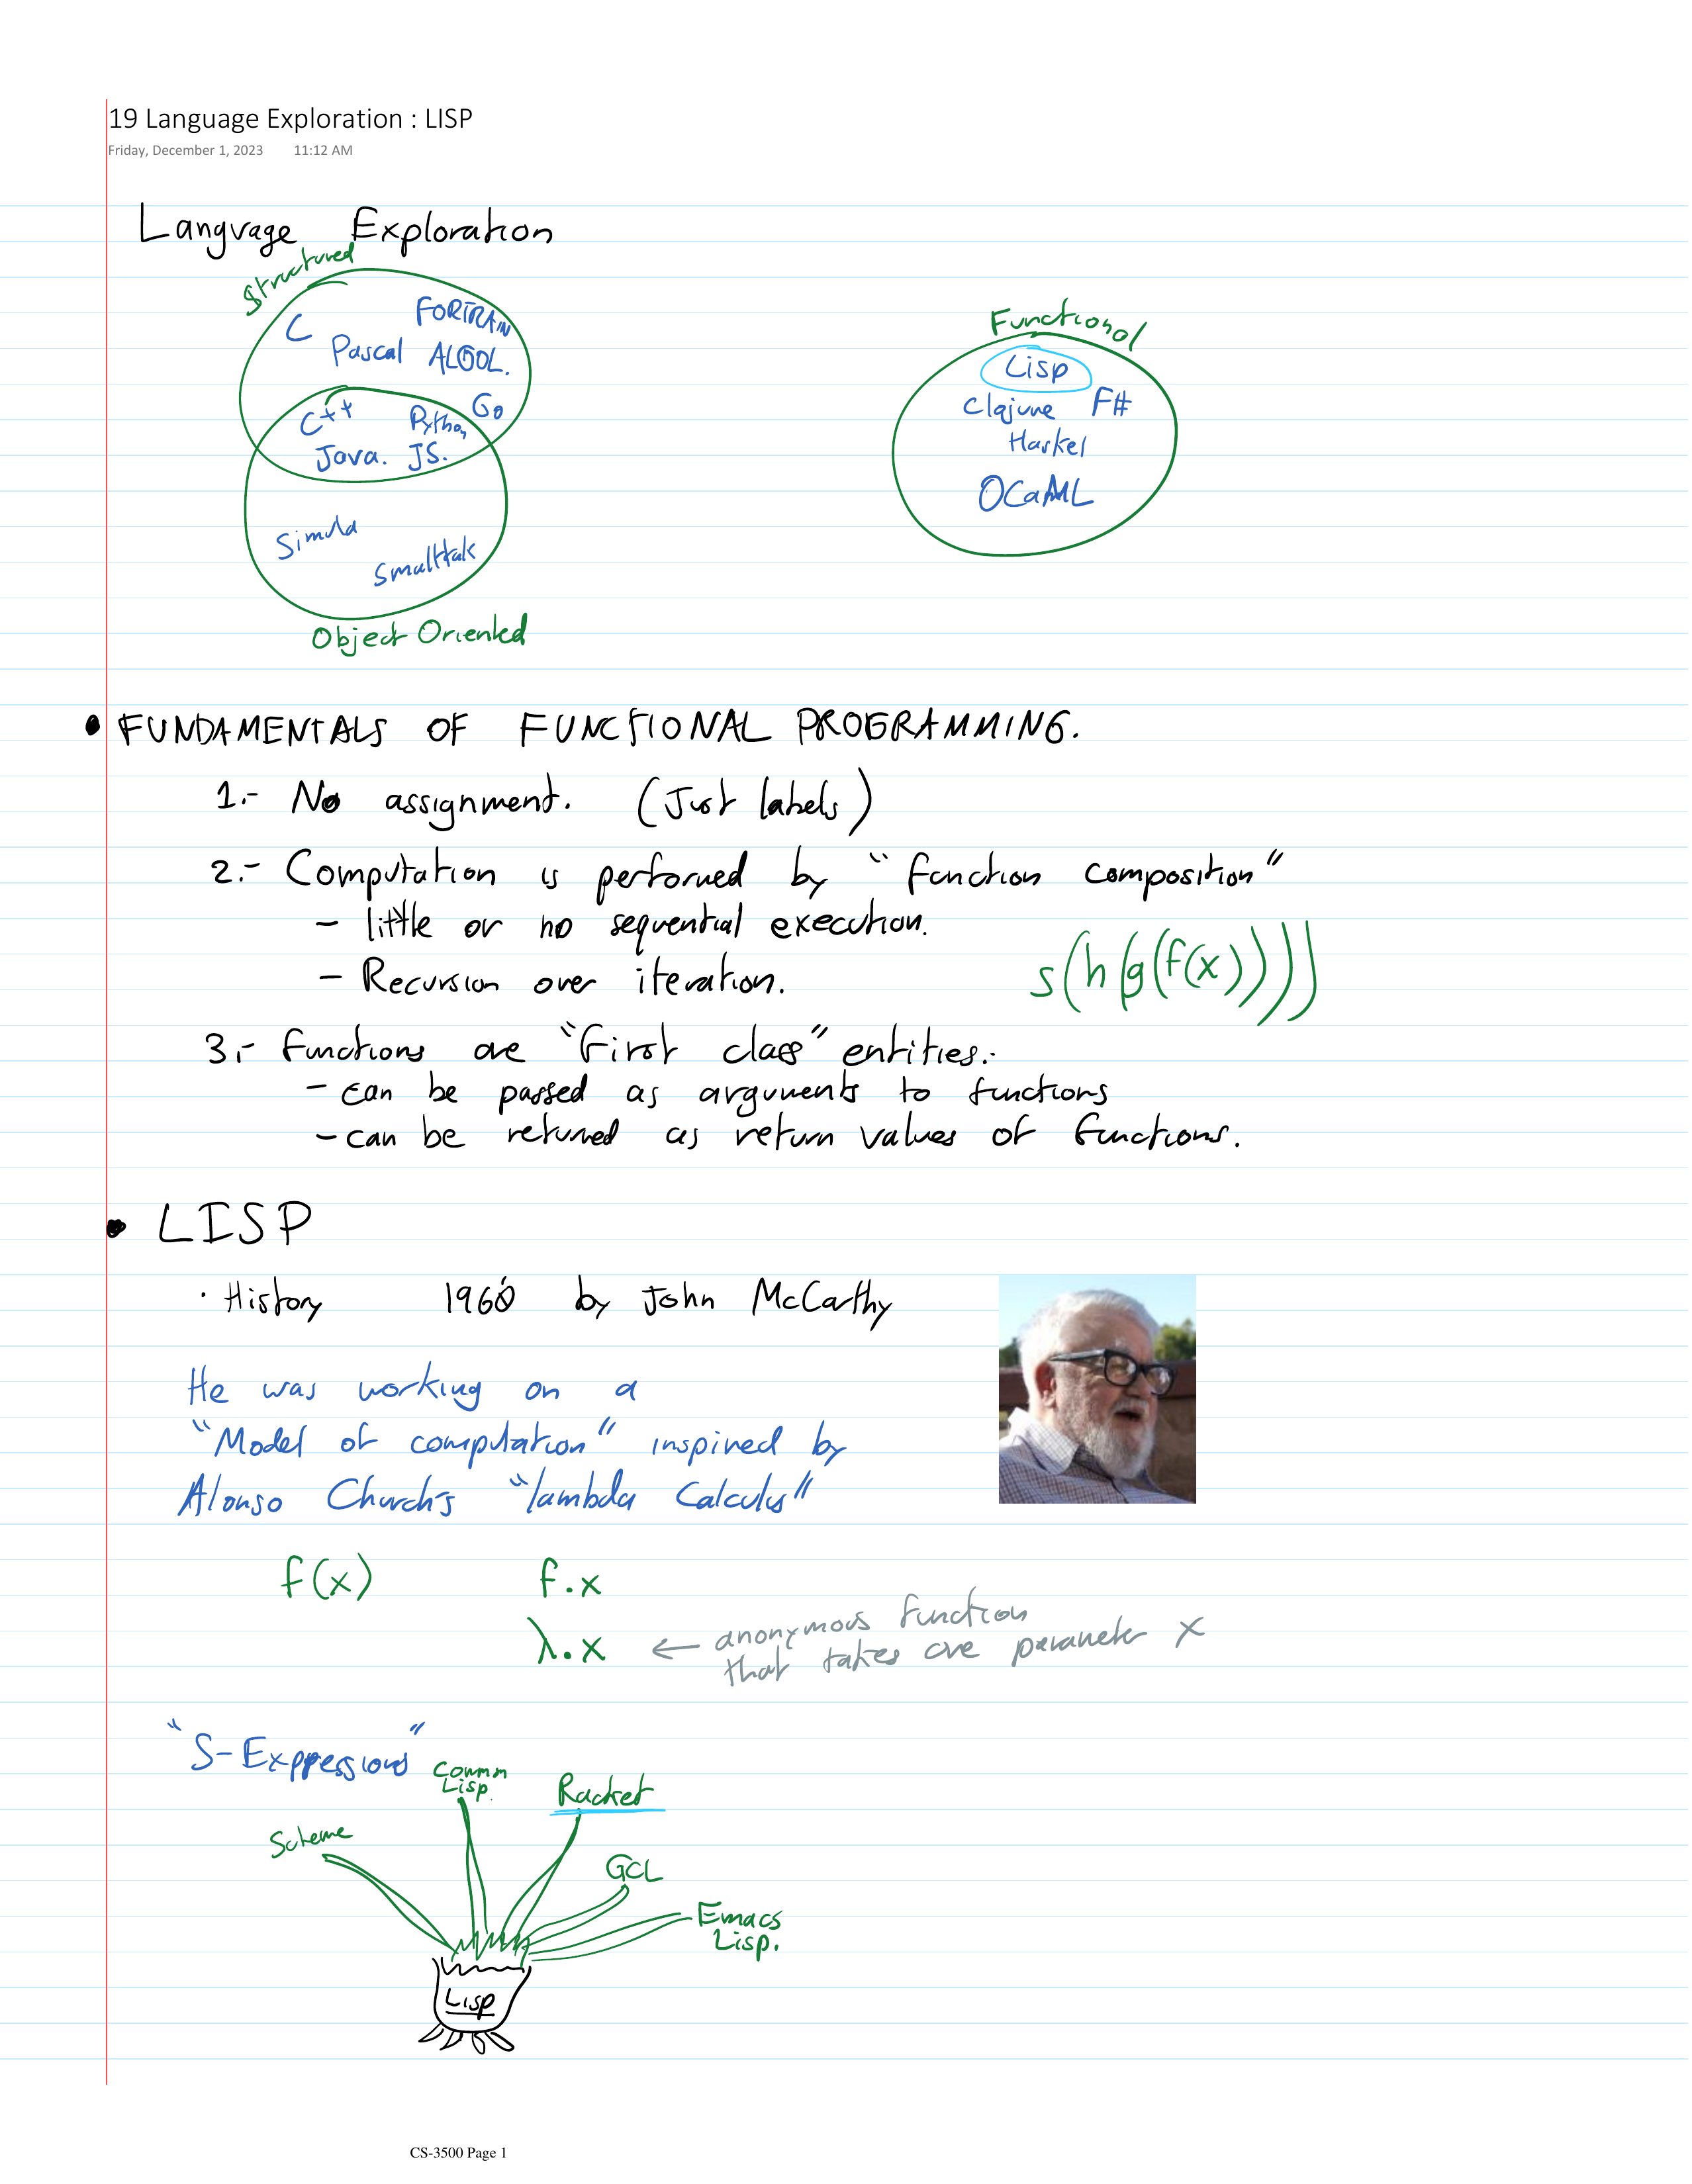 19 Language Exploration : LISP
Friday, December 1, 2023 11:12 AM
Language Exploration
Structured
C FORTRAN
Pascal ALGOL.
C++ Python Go
Java. JS.
Simula
Smalltalk
Object Oriented
Functional
Lisp
Clojure F#
Haskel
OCaML
• FUNDAMENTALS OF FUNCTIONAL PROGRAMMING.
1.- No assignment. (Just labels)
2.- Computation is performed by "function composition"
- little or no sequential execution.
- Recursion over iteration.
s(h(g(f(x))))
3.- functions are "first class" entities.
- can be passed as arguments to functions
- can be returned as return values of functions.
• LISP
· History 1960 by John McCarthy
He was working on a
"Model of computation" inspired by
Alonso Church's "lambda Calculus"
f(x) f.x
λ.x ← anonymous function
that takes one parameter x
"S-Expressions"
Common
Lisp.
Racket
Scheme
GCL
Emacs
Lisp.
Lisp
CS-3500 Page 1